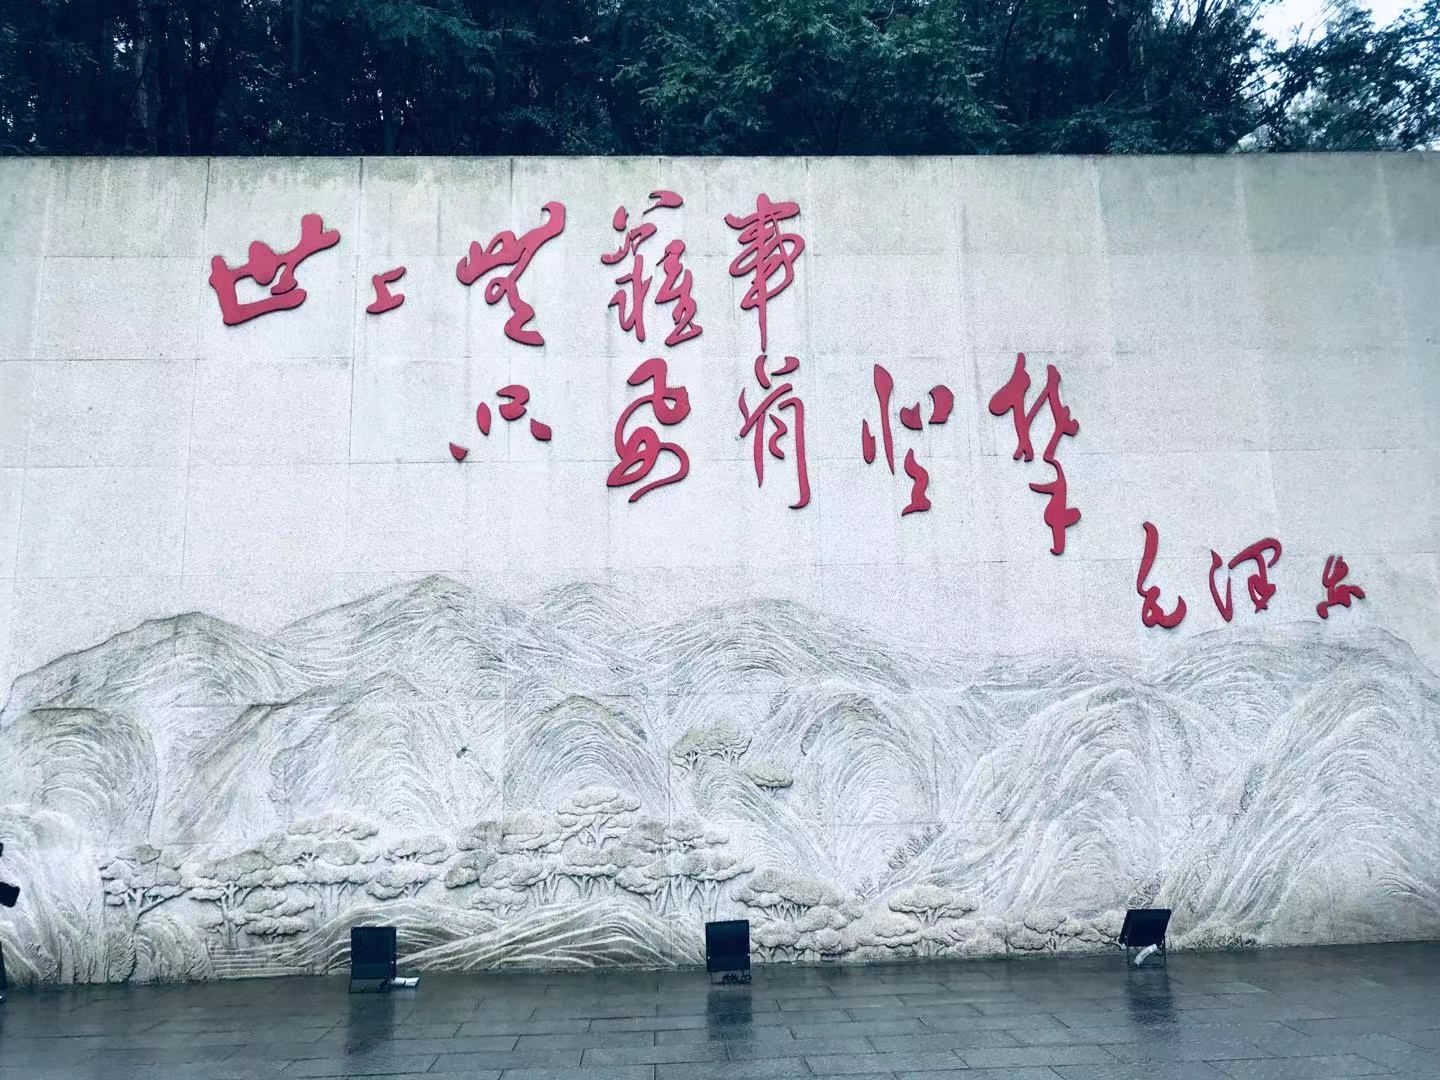 世上無難事
只要肯登攀
毛泽东